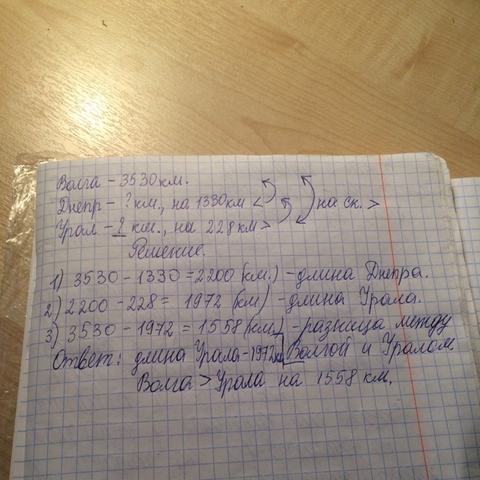 Волга - 3530 км.
Днепр - ? км., на 1330 км < на ск. >
Урал - ? км., на 228 км >
Решение.
1) 3530 - 1330 = 2200 (км.) - длина Днепра.
2) 2200 - 228 = 1972 (км) - длина Урала.
3) 3530 - 1972 = 1558 (км.) - разница между
Ответ: длина Урала - 1972 км Волгой и Уралом
Волга > Урала на 1558 км.